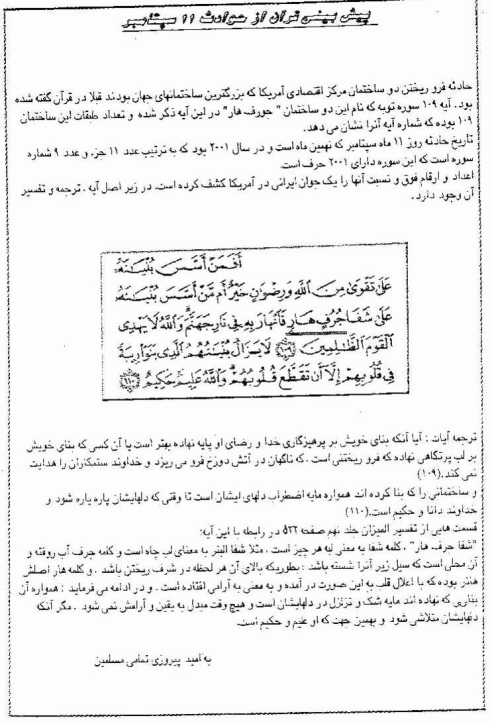 پیش بینی قرآن از حوادث ۱۱ سپتامبر
حادثه فرو ریختن دو ساختمان مرکز اقتصادی آمریکا که بزرگترین ساختمانهای جهان بودند قبلا در قرآن گفته شده
بود. آیه ۱۰۹ سوره توبه که نام این دو ساختمان "جورف هار" در این آیه ذکر شده و تعداد طبقات این ساختمان
۱۰۹ بوده که شماره آیه آنرا نشان می دهد.
تاریخ حادثه روز ۱۱ ماه سپتامبر که نهمین ماه است و در سال ۲۰۰۱ بود که به ترتیب عدد ۱۱ جزء و عدد ۹ شماره
سوره است که این سوره دارای ۲۰۰۱ حرف است.
اعداد و ارقام فوق و نسبت آنها را یک جوان ایرانی در آمریکا کشف کرده است. در زیر اصل آیه ، ترجمه و تفسیر
آن وجود دارد.
أَفَمَنْ أَسَّسَ بُنْيَانَهُ
عَلَى تَقْوَى مِنَ اللَّهِ وَرِضْوَانٍ خَيْرٌ أَم مَّنْ أَسَّسَ بُنْيَانَهُ
عَلَى شَفَا جُرُفٍ هَارٍ فَانْهَارَ بِهِ فِي نَارِ جَهَنَّمَ وَاللَّهُ لَا يَهْدِي
الْقَوْمَ الظَّالِمِينَ ۱۰۹ لَا يَزَالُ بُنْيَانُهُمُ الَّذِي بَنَوْا رِيبَةً
فِي قُلُوبِهِمْ إِلَّا أَن تَقَطَّعَ قُلُوبُهُمْ وَاللَّهُ عَلِيمٌ حَكِيمٌ ۱۱۰
ترجمه آیات : آیا آنکه بنای خویش بر پرهیزگاری خدا و رضای او پایه نهاده بهتر است یا آن کسی که بنای خویش
بر لب پرتگاهی نهاده که فرو ریختنی است ، که ناگهان در آتش دوزخ فرو می ریزد و خداوند ستمکاران را هدایت
نمی کند.(۱۰۹)
و ساختمانی را که بنا کرده اند همواره مایه اضطراب دلهای ایشان است تا وقتی که دلهایشان پاره پاره شود و
خداوند دانا و حکیم است.(۱۱۰)
قسمت هایی از تفسیر المیزان جلد نهم صفحه ۵۳۲ در رابطه با این آیه:
"شفا جرف هار" ، کلمه شفا به معنی لبه هر چیز است ، مثلا شفا البئر به معنای لب چاه است و کلمه جرف آب روفته و
آن محلی است که سیل زیر آنرا شسته باشد : بطوریکه بالای آن هر لحظه در شرف ریختن باشد ، و کلمه هار اصلش
هائر بوده که با اعلال قلب به این صورت در آمده و به معنی به آرامی افتاده است . و در ادامه می فرماید : همواره آن
بنایی که نهاده اند مایه شک و تزلزل در دلهایشان است و هیچ وقت مبدل به یقین و آرامش نمی شود . مگر آنکه
دلهایشان متلاشی شود و بهمین جهت که او علیم و حکیم است.
به امید پیروزی تمامی مسلمین